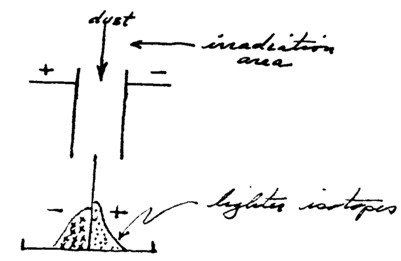 dust
irradiation
area
+ −
− +
lighter isotopes